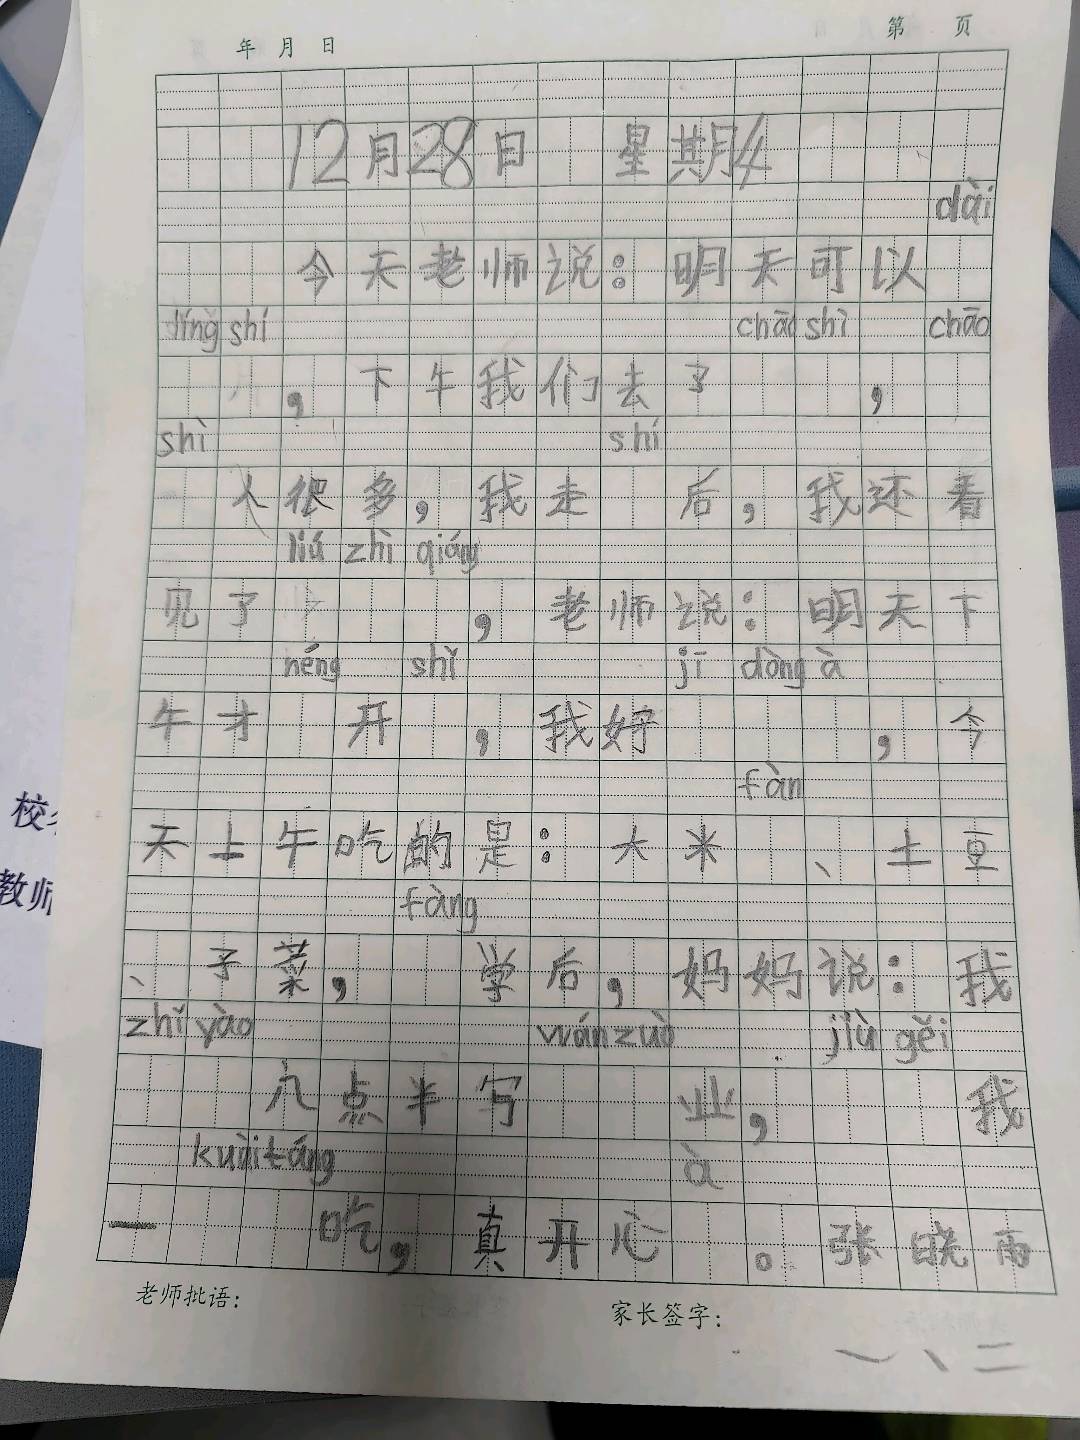 年 月 日 第 页
12月28日 星期4
dài
今天老师说：明天可以
líng shí chāo shì chāo
，下午我们去了 ，
shì shí
人很多，我走 后，我还看
liú zhì qiáng
见了 ，老师说：明天下
néng shǐ jī dòng à
午才开 ，我好 ，今
fàn
天上午吃的是：大米 、土豆
fàng
、子菜， 学后，妈妈说：我
zhǐ yào wán zuò jiù gěi
八点半写 业， 我
kuài táng à
一 吃，真开心 。张晓雨
老师批语： 家长签字：
校
教师